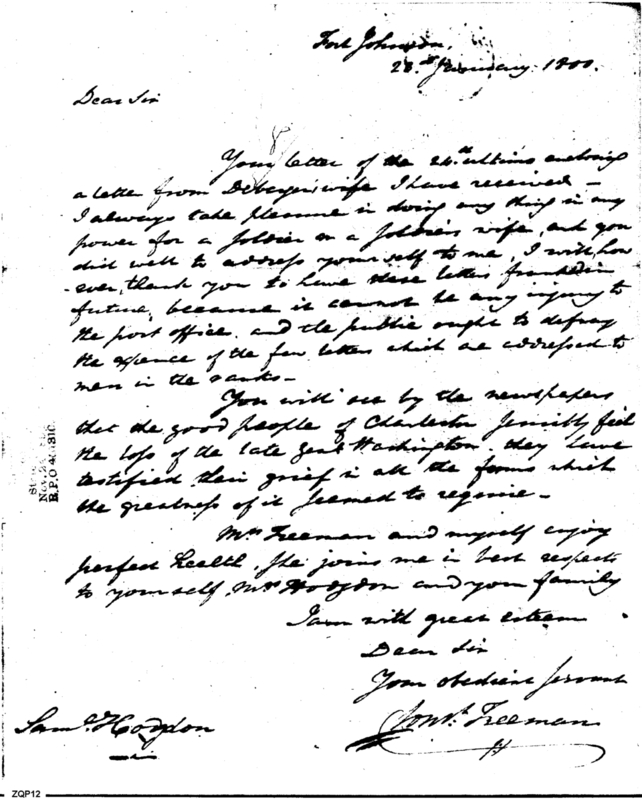 Fort Johnson,
28th January 1800.
Dear Sir
Your letter of the 24th ultimo enclosing
a letter from wife I have received –
I always take pleasure in doing any thing in my
power for a Soldier or a Soldiers wife, and you
did well to address yourself to me, I will, how
-ever, thank you to have these letters franked in
future, because it cannot be any injury to
the post office, and the public ought to defray
the expence of the few letters which are addressed to
men in the ranks –
You will see by the newspapers
that the good people of Charleston sensibly feel
the loss of the late Genl Washington, they have
testified their grief in all the forms which
the greatness of it seemed to require –
Mrs Freeman and myself enjoy
perfect health, She joins me in best respects
to yourself, Mrs Hodgdon and your family
I am with great esteem
Dear Sir
Your obedient Servant
Const. Freeman
Saml. Hodgdon
B.P.O
ZQP12